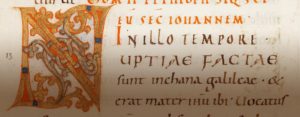 EU SEC IOHANNEM
IN ILLO TEMPORE
NUPTIAE FACTAE
sunt inchana galileae · &
erat mater ihu ibi Uocatus